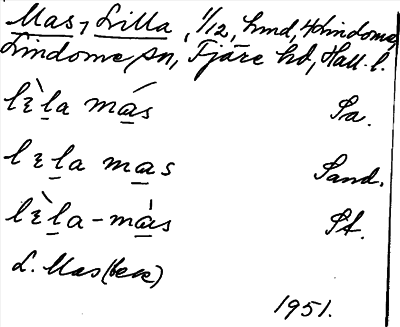 Mas, Lilla, 1/12, hmd, 4 Lindome,
Lindome sn, Fjäre hd, Hall. l.
lὲla màs Sa.
lɛla mas Sand.
lὲla-màs St.
L. Mas
1951.